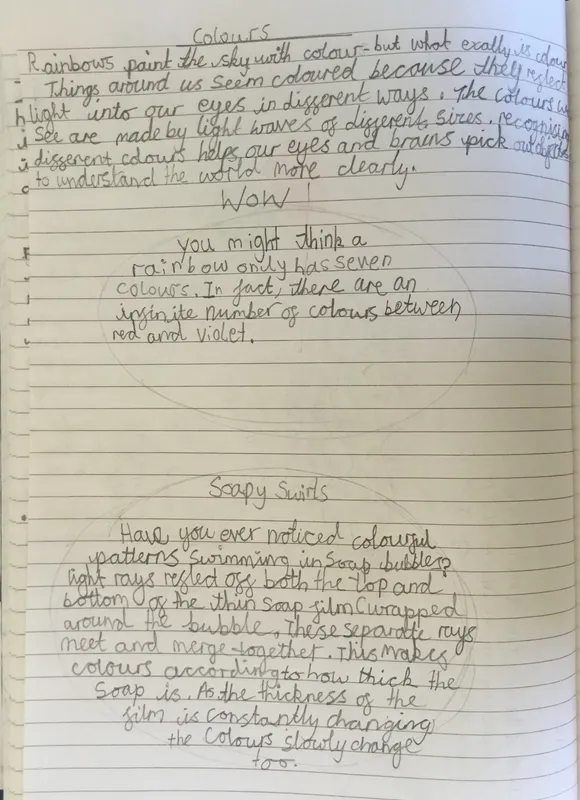 Colours
Rainbows paint the sky with colour-but what exally is colour
Things around us seem coloured because they reflect
light into our eyes in different ways. The colours we
See are made by light waves of different sizes. recognising
different colours helps our eyes and brains pick out
to understand the world more clearly.
WOW!
you might think a
rainbow only has seven
colours. In fact, there are an
infinite number of colours between
red and violet.
Soapy Swirls
Have you ever noticed colourful
patterns swimming in soap bubbles?
light rays reflect off both the top and
bottom of the thin soap film (wrapped
around the bubble. These separate rays
meet and merge together. This makes
colours according to how thick the
soap is. As the thickness of the
film is constantly changing
the colours slowly change
too.